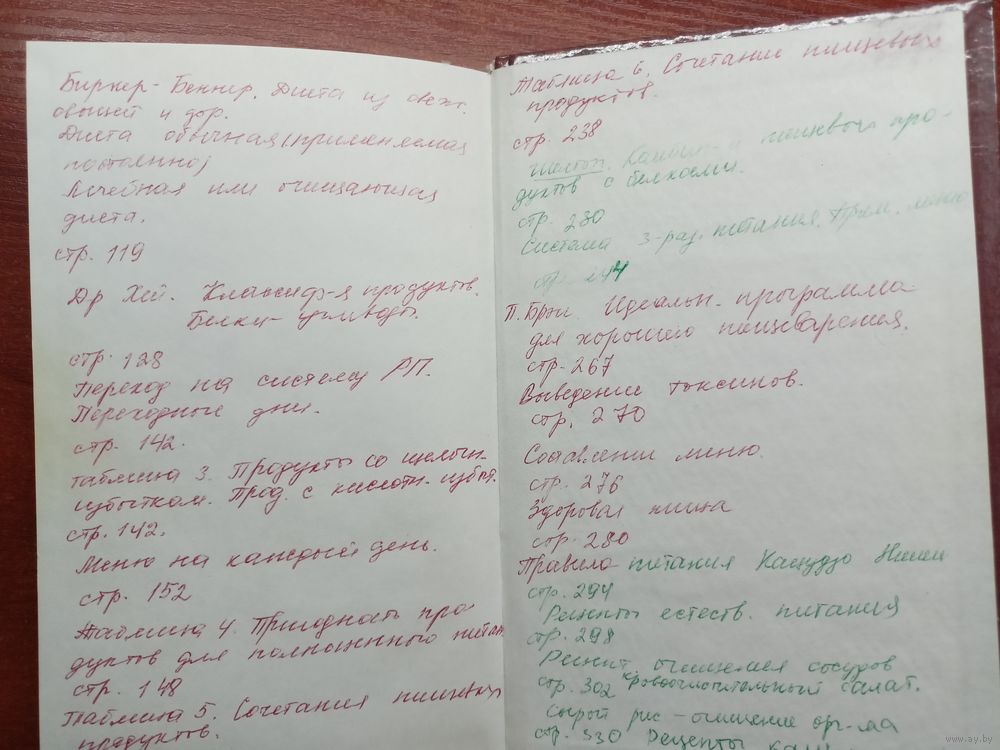 Бирхер-Беннер. Диета из свеж.
овощей и др.
Диета обычная (применяемая
постоянно)
Лечебная или очищающая
диета.
стр. 119
Др Хей. Классиф-я продуктов.
Белки-углеводы.
стр. 128
Переход на систему РП.
Переходные дни.
стр. 142.
Таблица 3. Продукты со щелочн.
избытком. Прод. с кислотн. избыт.
стр. 142.
Меню на каждый день.
стр. 152
Таблица 4. Пригодность про-
дуктов для полноценного питан
стр. 148
Таблица 5. Сочетания пищевых
продуктов.
Таблица 6. Сочетание пищевых
продуктов.
стр. 238
Шелтон. пищевых про-
дуктов с белками.
стр. 230
Система 3-раз. питания. Прим. меню
стр. 244
П. Брэг. Идеальн. программа
для хорошего пищеварения.
стр. 267
Выведение токсинов.
стр. 270
Составление меню.
стр. 276
Здоровая пища
стр. 280
Правила питания Кацудзо Ниши
стр. 294
Рецепты естеств. питания
стр. 298
Рецепт. очищения сосудов
стр. 302 салат.
Сырой рис - очищение орг-ма
стр. 330 Рецепты каш
www.ay.by